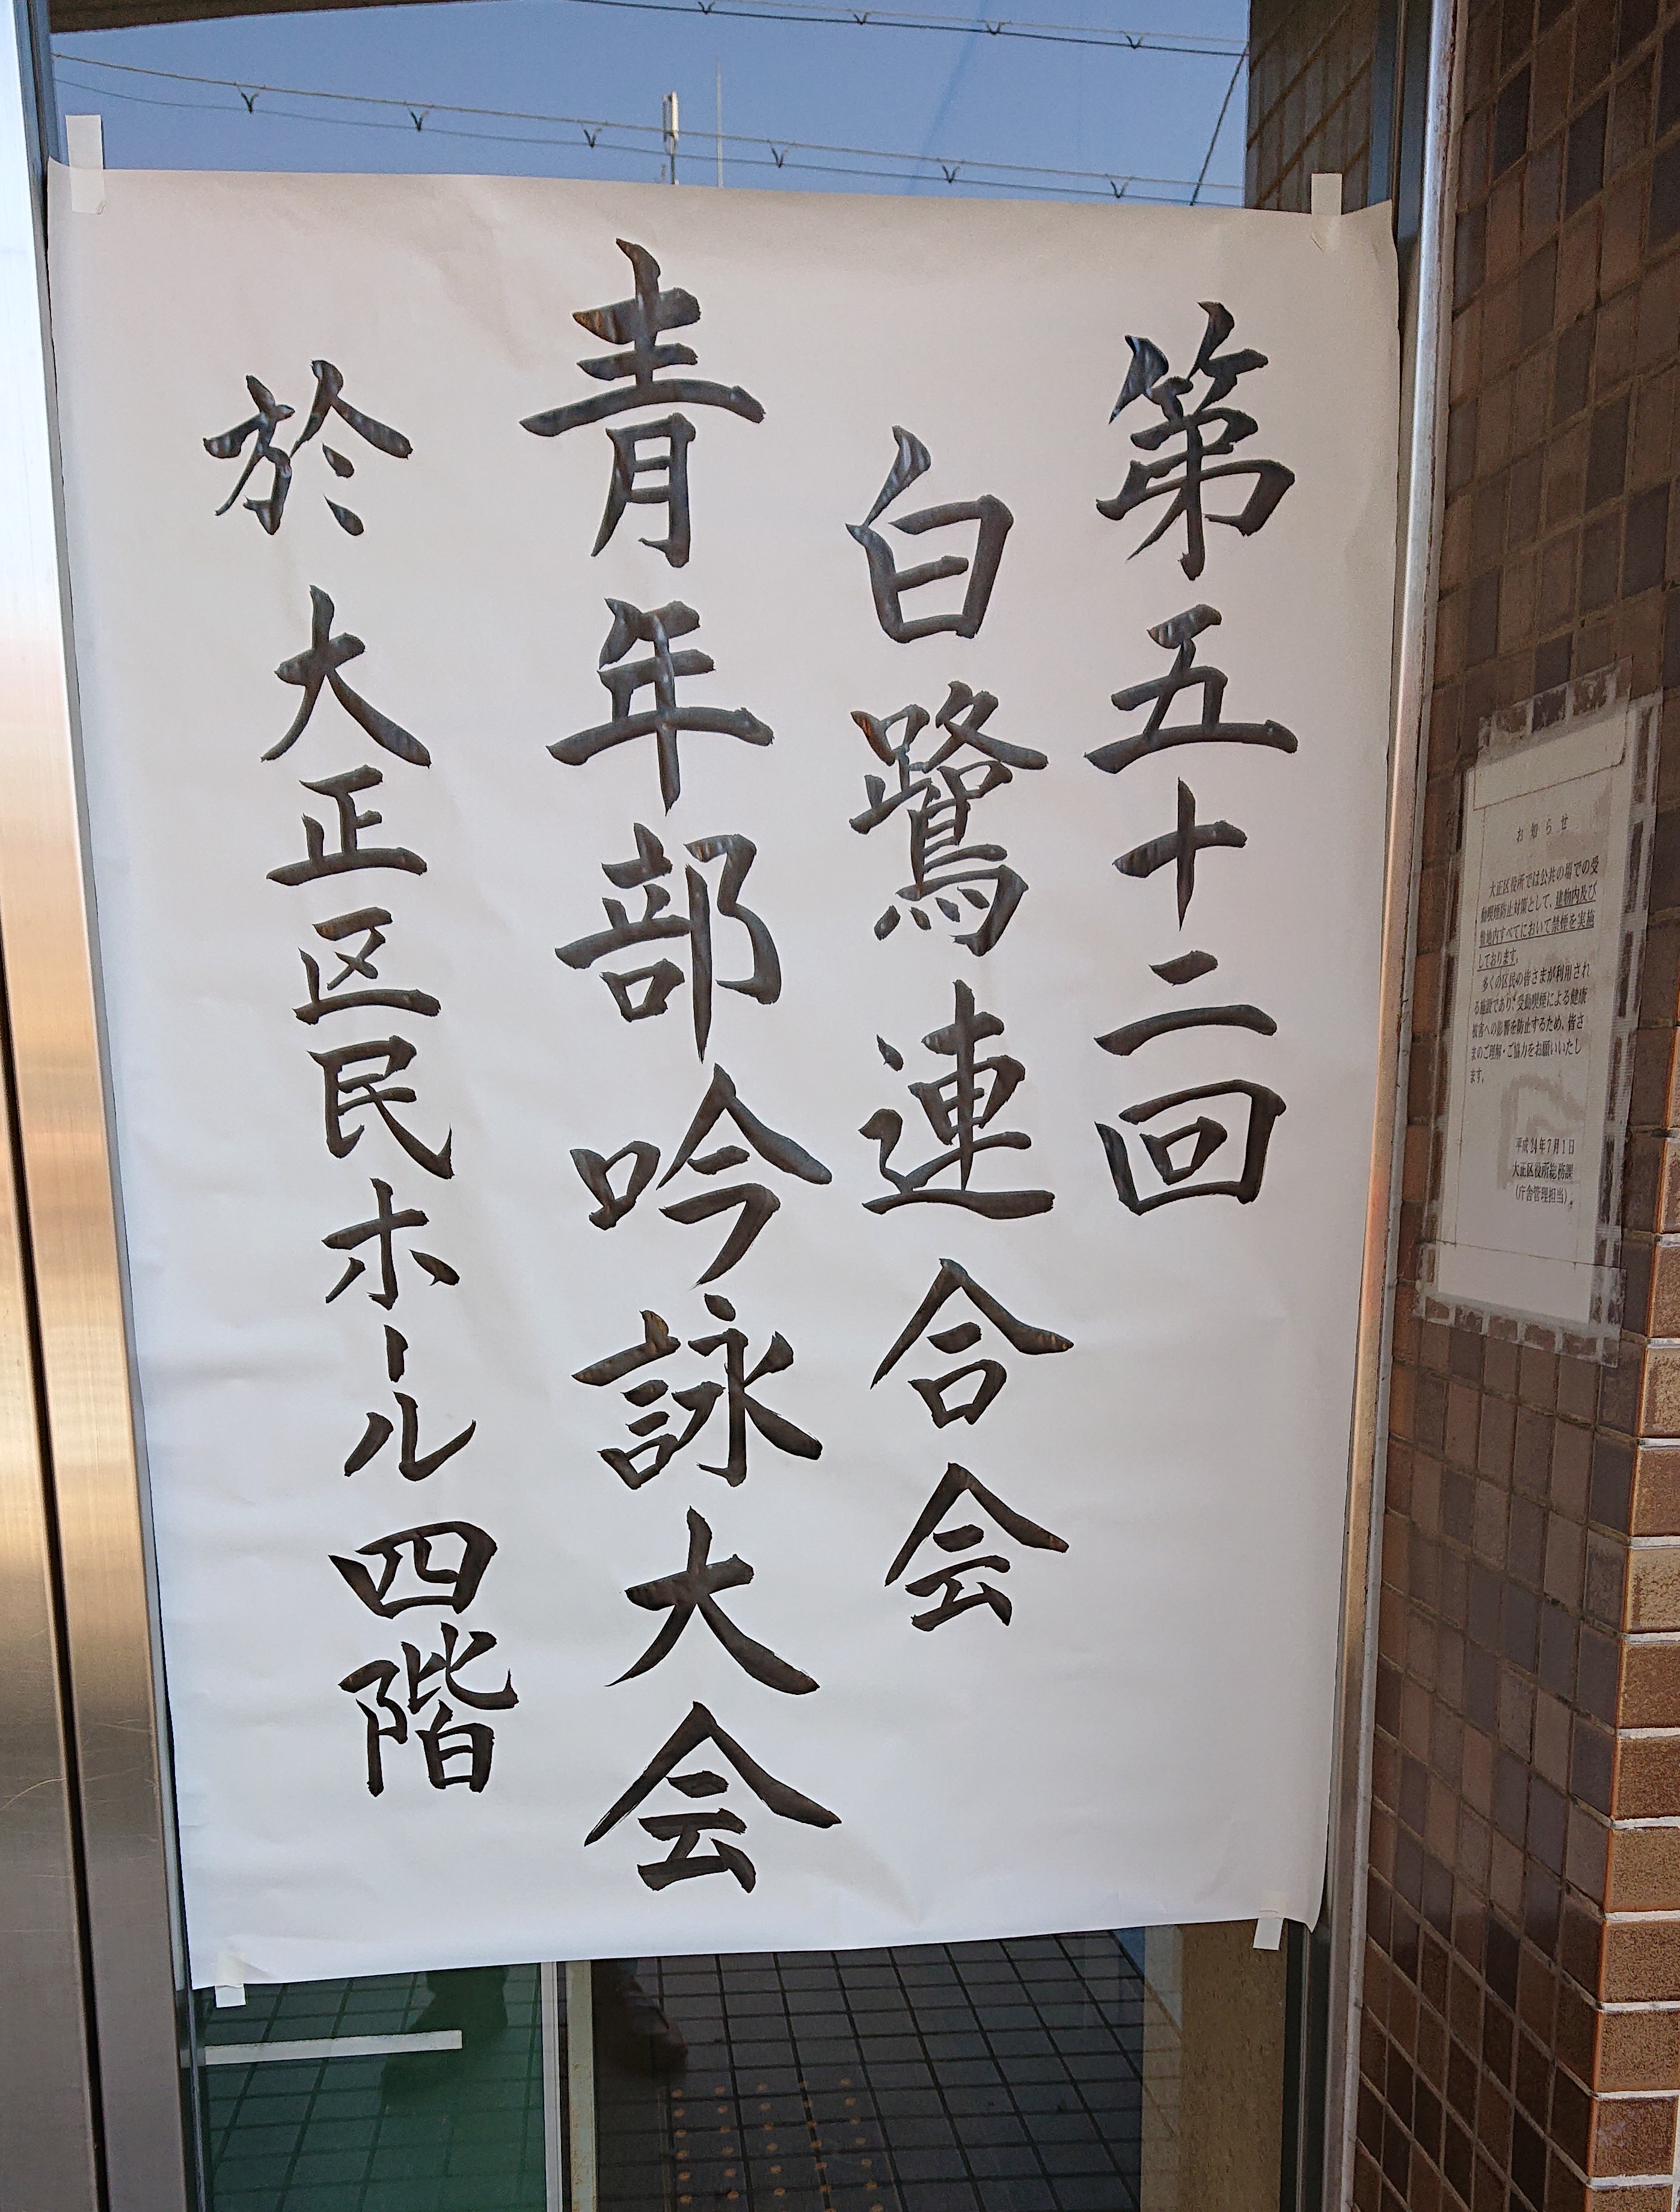 第五十二回
白鷺連合会
青年部吟詠大会
於 大正区民ホール四階
お知らせ
大正区役所では公共の場での受
動喫煙防止対策として、建物内及び
敷地内すべてにおいて禁煙を実施
しております。
多くの区民の皆さまが利用され
る施設であり、受動喫煙による健康
被害への影響を防止するため、皆さ
まのご理解・ご協力をお願いいたし
ます。
平成24年7月1日
大正区役所総務課
(庁舎管理担当)